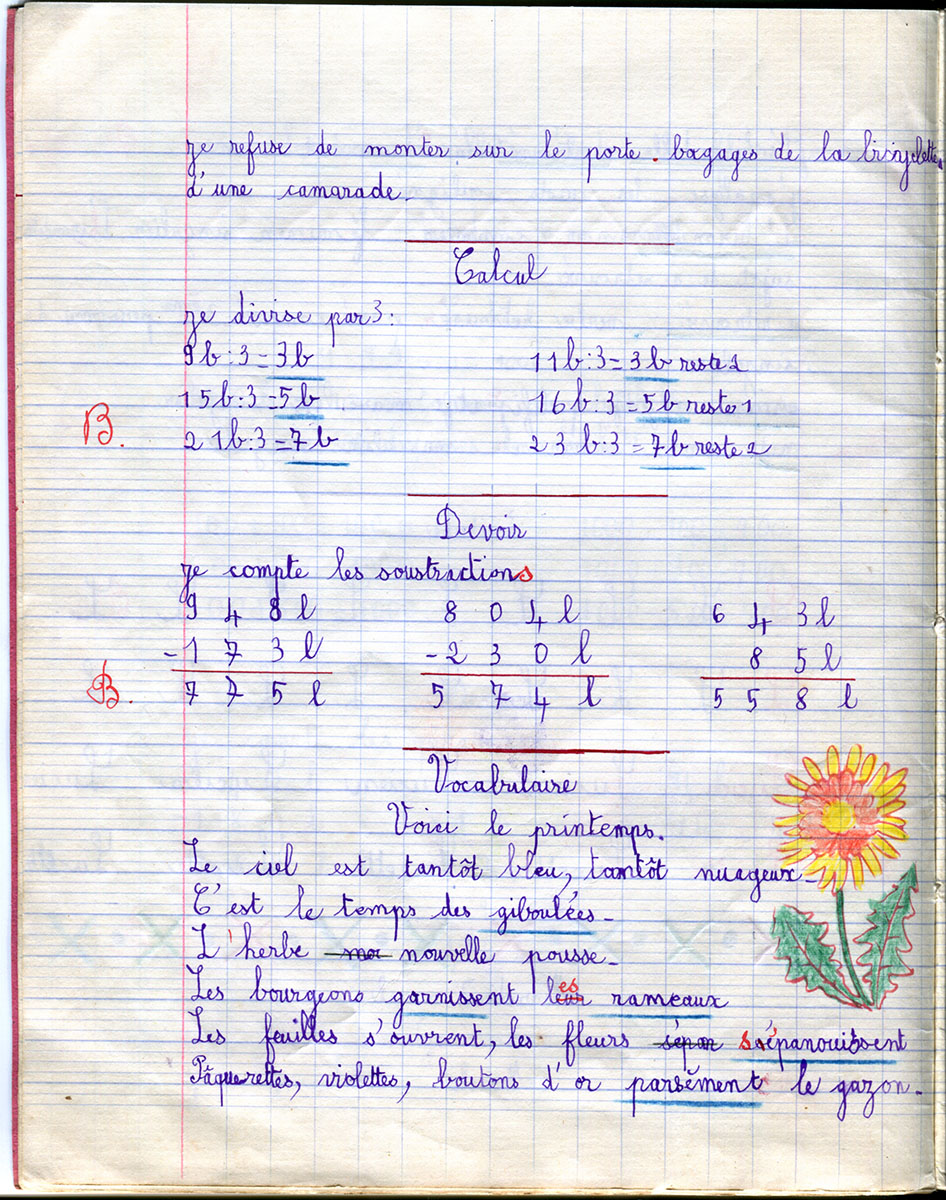 Je refuse de monter sur le porte-bagages de la bicyclette
d'une camarade.
Calcul
Je divise par 3:
9b:3=3b 11b:3=3b reste 2
15b:3=5b 16b:3=5b reste 1
B.
21b:3=7b 23b:3=7b reste 2
Devoir
Je compte les soustractions
9 4 8 l 8 0 4 l 6 4 3 l
-1 7 3 l -2 3 0 l 8 5 l
B. 7 7 5 l 5 7 4 l 5 5 8 l
Vocabulaire
Voici le printemps.
Le ciel est tantôt bleu, tantôt nuageux.
C'est le temps des giboulées.
L'herbe nouvelle pousse.
Les bourgeons garnissent les rameaux
Les feuilles s'ouvrent, les fleurs s'épanouissent
Pâquerettes, violettes, boutons d'or parsèment le gazon.